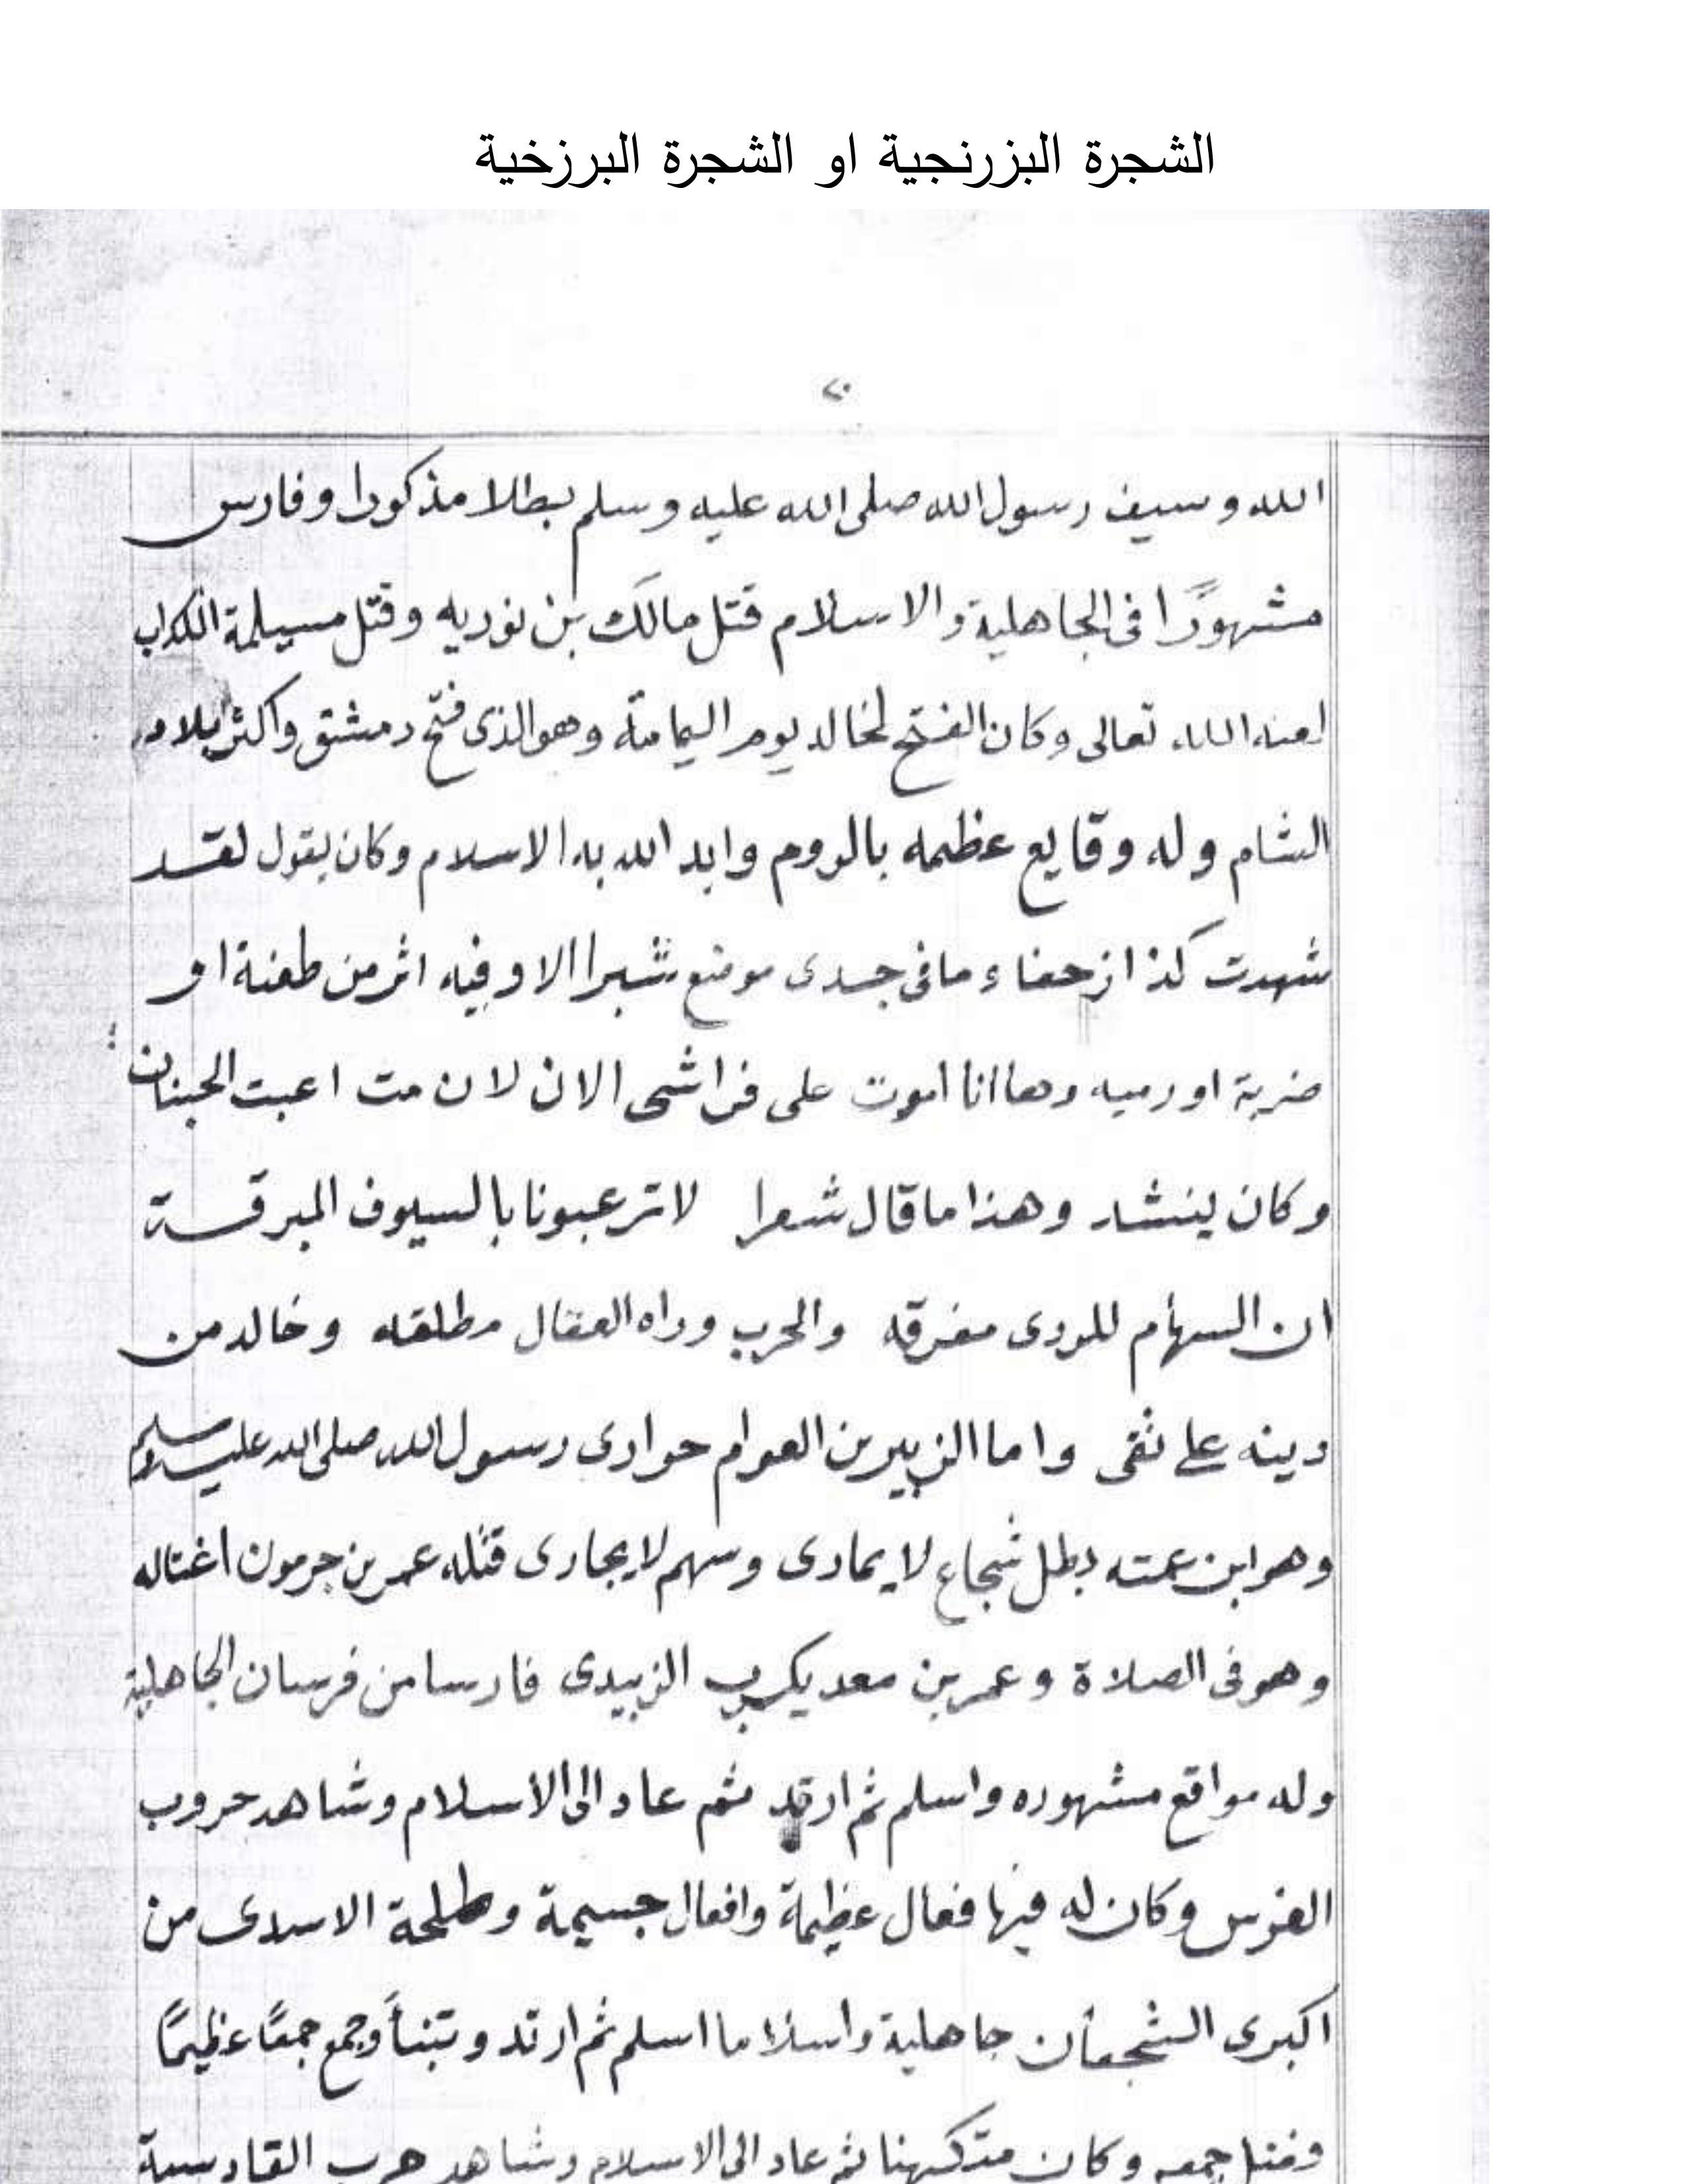 الشجرة البزرنجية او الشجرة البرزخية
٢٠
الله وسيف رسول الله صلى الله عليه وسلم بطلا مذكورا وفارس
مشهورًا فى الجاهلية والاسلام قتل مالك بن نوريه وقتل مسيلمة الكداب
لعنه الله تعالى وكان الفتح لخالد يوم اليمامة وهو الذى فتح دمشق واكثر بلاد
الشام وله وقايع عظيمه بالروم وايد الله به الاسلام وكان يقول لقد
شهدت كذا ما فى جسدى موضع شبرا الا وفيه اثر من طعنة او
ضربة او رميه وها انا اموت على فراشى الان لان مت
وكان ينشد وهذا ما قال شعرا لا ترعبونا بالسيوف المبرقة
ان السهام للردى مفرقه والحرب وراه العقال مطلقه وخالد من
دينه على ثقى واما الزبير بن العوام حوارى رسول الله صلى الله عليه وسلم
وهو ابن عمته بطل شجاع لا يمادى وسهم لا يجارى قتله عمر بن جرمون اغتاله
وهو فى الصلاة وعمر بن معد يكرب الزبيدى فارسا من فرسان الجاهلية
وله مواقع مشهوره واسلم ثم ارتد ثم عاد الى الاسلام وشاهد حروب
الفرس وكان له فيها فعال عظيمة وافعال جسيمة وطلحة الاسدى من
اكبرى الشجعان جاهلية واسلاما اسلم ثم ارتد وتنبأ وجمع جمعًا عظيمًا
جمعه وكان متكهنا ثم عاد الى الاسلام وشاهد حرب القادسية